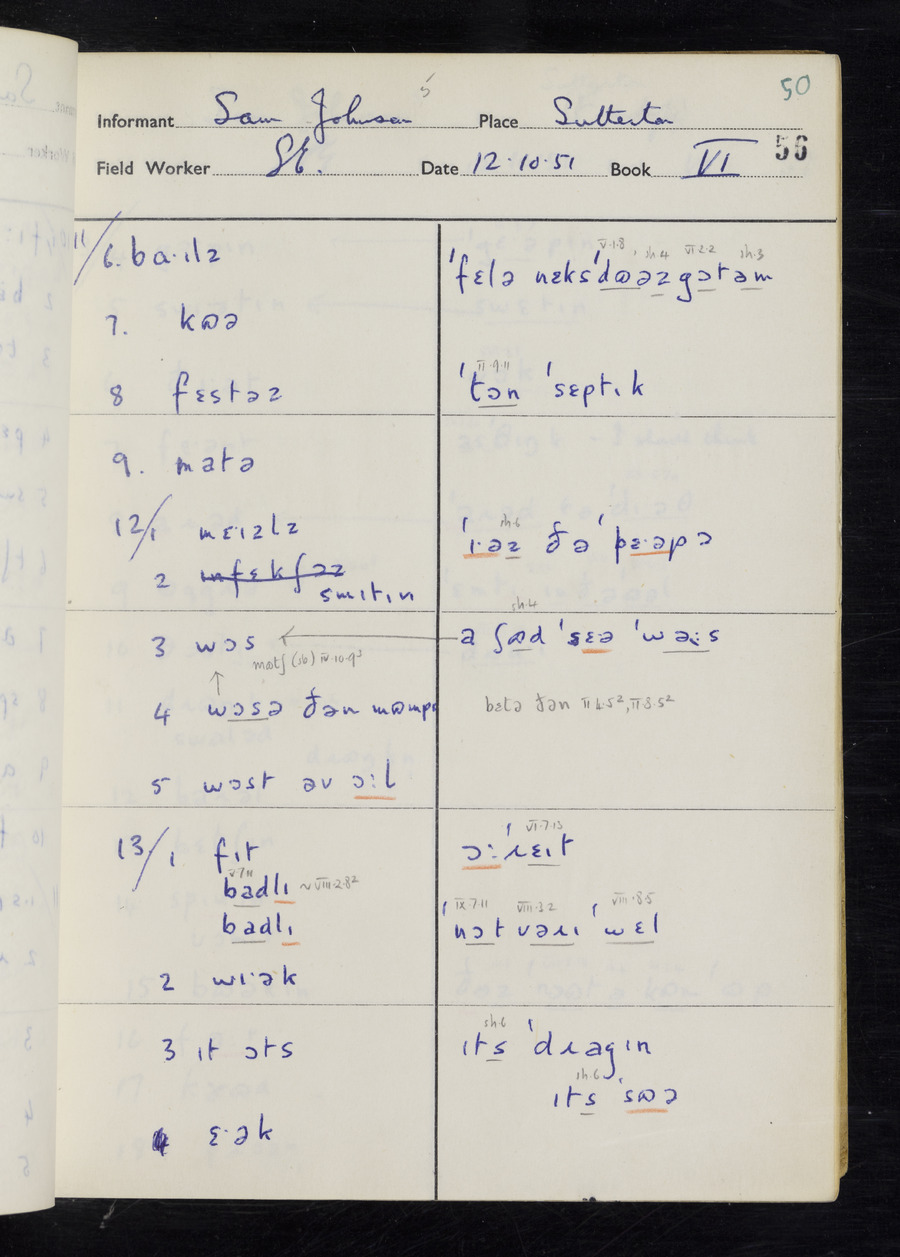 50
Informant Sam Johnson 5 Place Sutterton
56
Field Worker SE. Date 12.10.51 Book VI
11/6. ba·ɪlz
V.1.8 sh.4 VII.2.2 sh.3
ˈfɛlə nɛksˈdɷəz gɔtəm
7. kɷə
II.9.11
8 fɛstəz ˈtɔn ˈsɛptɪk
9. matə
sh.6
12/1 mɛ·ɪzlz ˈɪ·əz ðəˈpɛ·əpɔ
2 ɪnfɛkʃəz
smɪtɪn
sh.4
3 wɔs a ʃɷd ˈsɛə ˈwəːs
matʃ (sb) IV.10.9³
4 wɔsə ðən mɷmps bɛtə ðən II.4.5², II.8.5²
5 wɔst əv ɔːl
VI.7.13
13/1 fɪt ɔːˈɹɛɪt
V.7.11
badlɪ ~ VIII.2.8²
IX.7.11 VIII.3.2 VIII.8.5
badlɪ ˈnɔt vəɹɪ ˈwɛl
2 wɪ·ək
sh.6
3 ɪt ɔts ɪts ˈdɹagɪn
sh.6
ɪts ˈsɷə
4 ɛ·ək